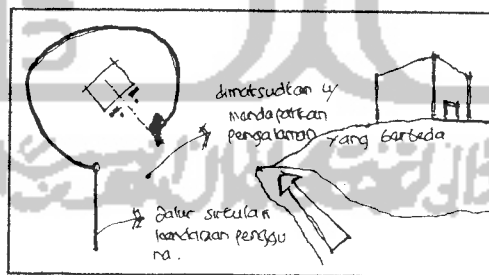 dimaksudkan u/
mendapatkan
pengalaman yang berbeda
Jalur sirkulasi
kendaraan penggu
na.